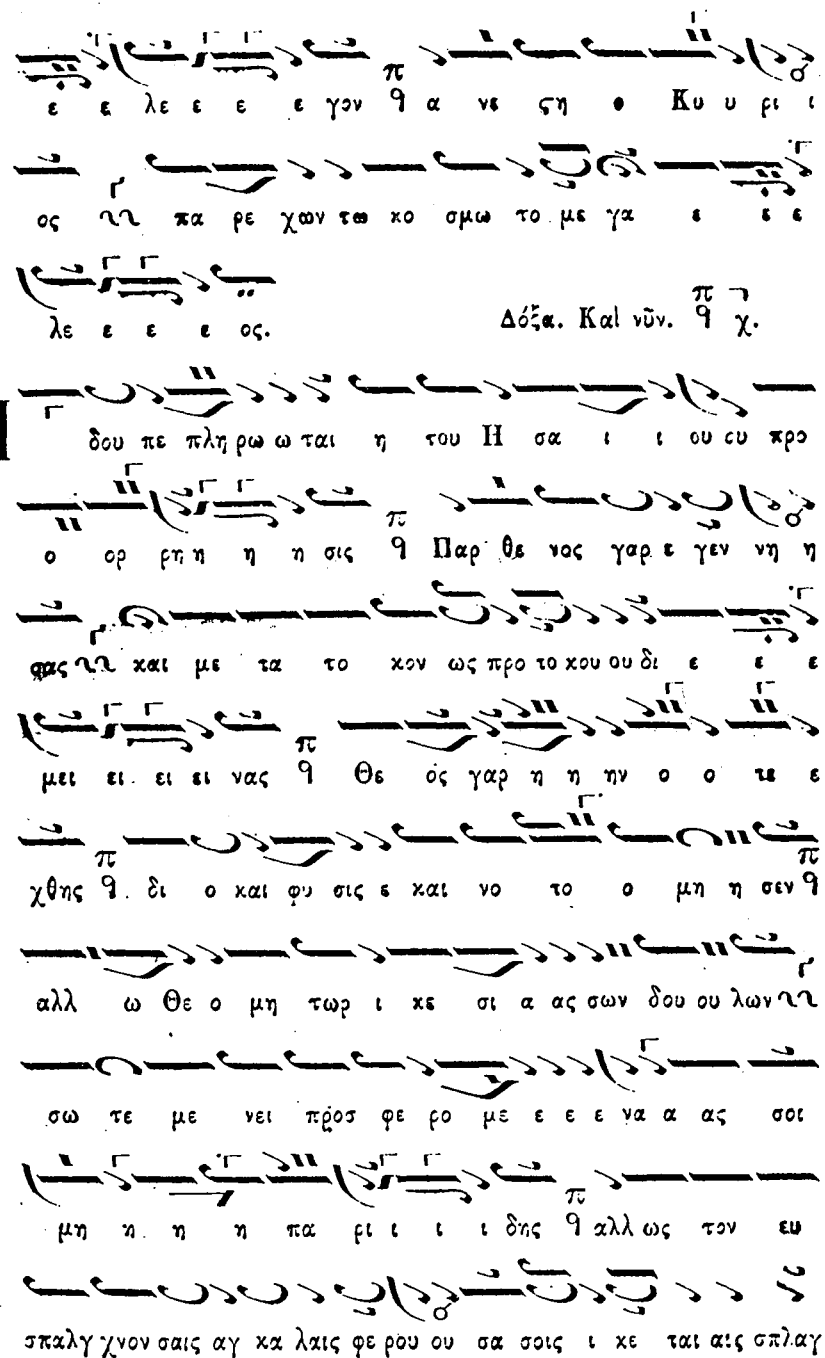 ε ε λε ε ε ε γον α νε ςη ο Κυ υ ρι ι
ος πα ρε χων τω κο σμω το με γα ε ε ε
λε ε ε ε ος. Δόξα. Καὶ νῦν. π χ.
Ι δου πε πλη ρω ω ται η του Η σα ι ι ου ου προ
ο ορ ρη η η η σις Παρ θε νος γαρ ε γεν νη η
σας και με τα το κον ως προ το κου ου δι ε ε ε
μει ει ει ει νας Θε ός γαρ η η ην ο ο τε ε
χθης δι ο και φυ σις ε και νο το ο μη η σεν
αλλ ω Θε ο μη τωρ ι κε σι α ας σων δου ου λων
σω τε με νει πρόσ φε ρο με ε ε ε να α ας σοι
μη η η η πα ρι ι ι δης αλλ ως τον ευ
σπαλγ χνον σαις αγ κα λαις φε ρου ου σα σοις ι κε ται αις σπλαγ